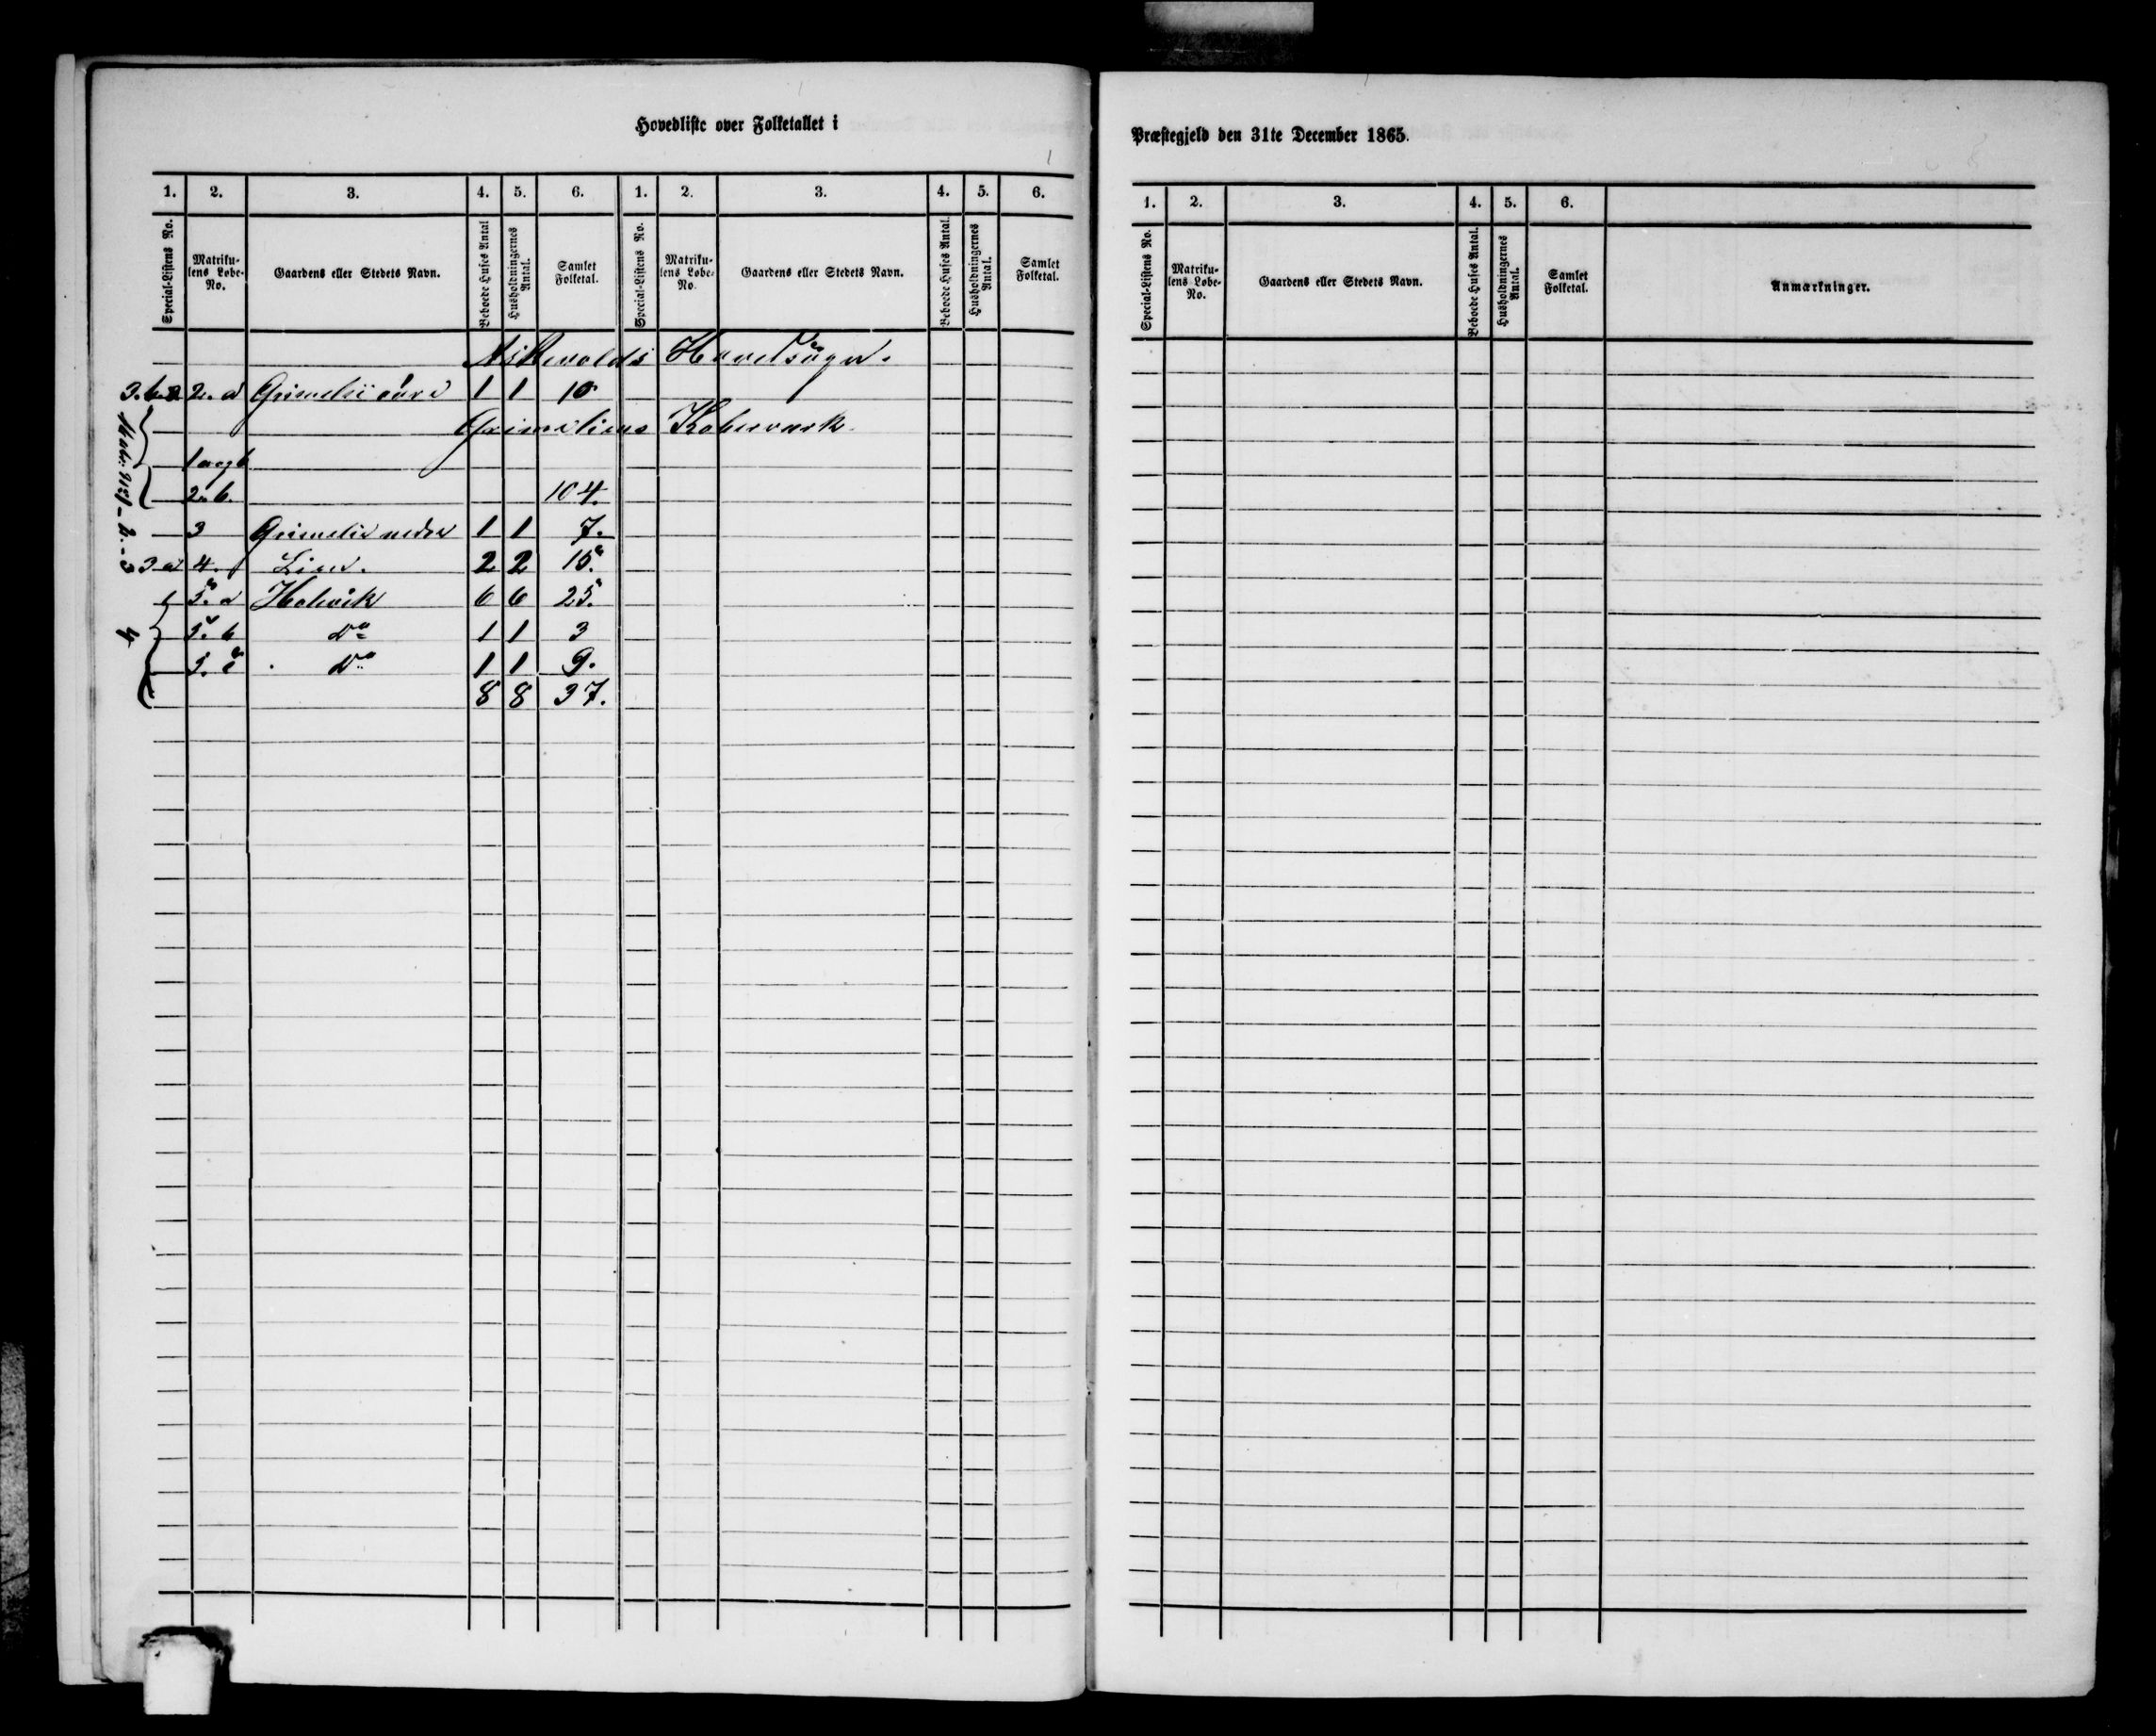 Hovedliste over Folketallet i
Præstegjeld den 31te December 1865.
1. 2. 3. 4. 5. 6. 1. 2. 3. 4. 5. 6.
Special-Listens No. Matrikulens Løbe-No. Gaardens eller Stedets Navn. Beboede Huses Antal Husholdningernes Antal. Samlet Folketal. Special-Listens No. Matrikulens Løbe-No. Gaardens eller Stedets Navn. Beboede Huses Antal. Husholdningernes Antal. Samlet Folketal.
Askevolds Hovedsogn.
2. a Grimelie øvre 1 1 10
Grimeliens Kobberværk
1 a og b
2. b. 104.
3 Grimelie nedre 1 1 7.
3 a 4. Lien. 2 2 15.
5. a Holevik 6 6 25.
4 5. b Do 1 1 3
5. c Do 1 1 9.
8 8 37.
1. 2. 3. 4. 5. 6.
Special-Listens No. Matrikulens Løbe-No. Gaardens eller Stedets Navn. Beboede Huses Antal. Husholdningernes Antal. Samlet Folketal. Anmærkninger.